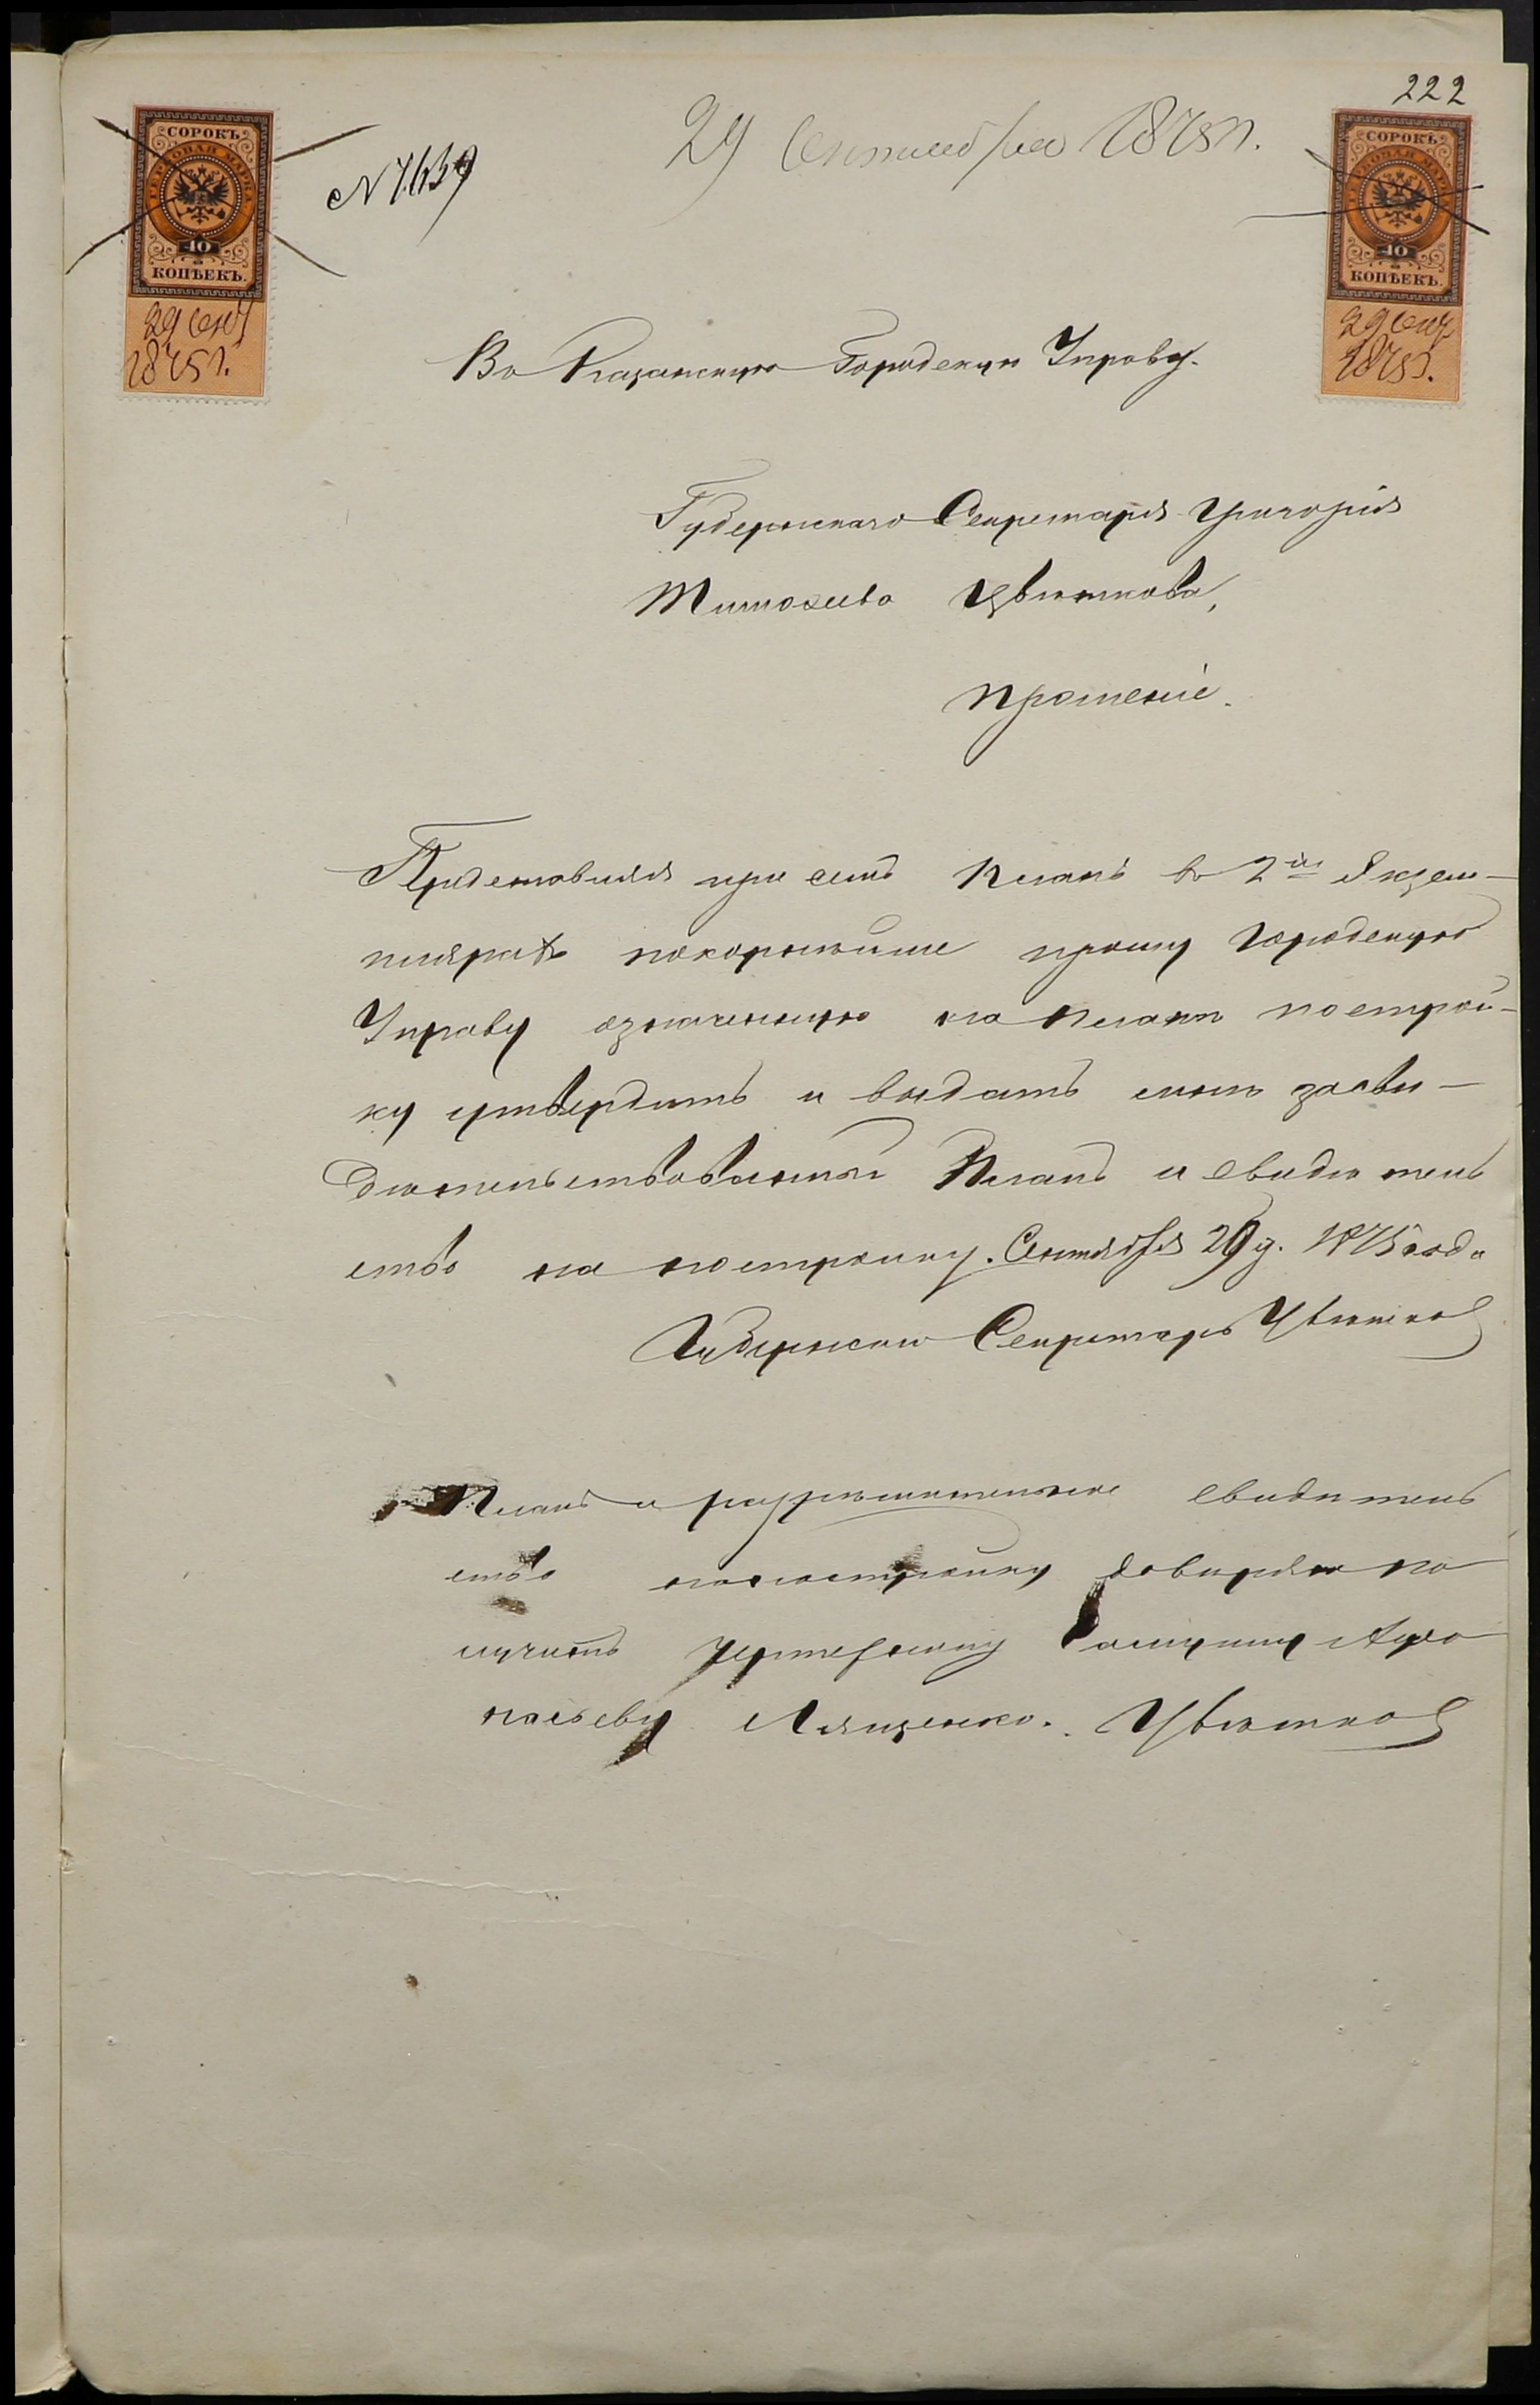 222
29 Сентября 1875 г.
N 7639
СОРОКЪ
ГЕРБОВАЯ МАРКА
40
КОПѢЕКЪ.
29 Сент
1875 г.
СОРОКЪ
ГЕРБОВАЯ МАРКА
40
КОПѢЕКЪ.
29 Сент
1875 г.
Въ Казанскую Городскую Управу.
Губернскаго Секретаря Григорія
Тимофеева Цвѣткова,
Прошеніе.
Представляя при семъ планъ въ 2хъ Экзем-
плярахъ покорнѣйше прошу Городскую
Управу означенную на планѣ построй-
ку утвердить и выдать мнѣ засви-
дѣтельствованный Планъ и свидѣтель
ство на постройку. Сентября 29 д. 1875 года
Губернский Секретарь Цвѣтков
Планъ и разрѣшительное свидѣтель
ство на постройку довѣряю по
лучить
Цвѣтков